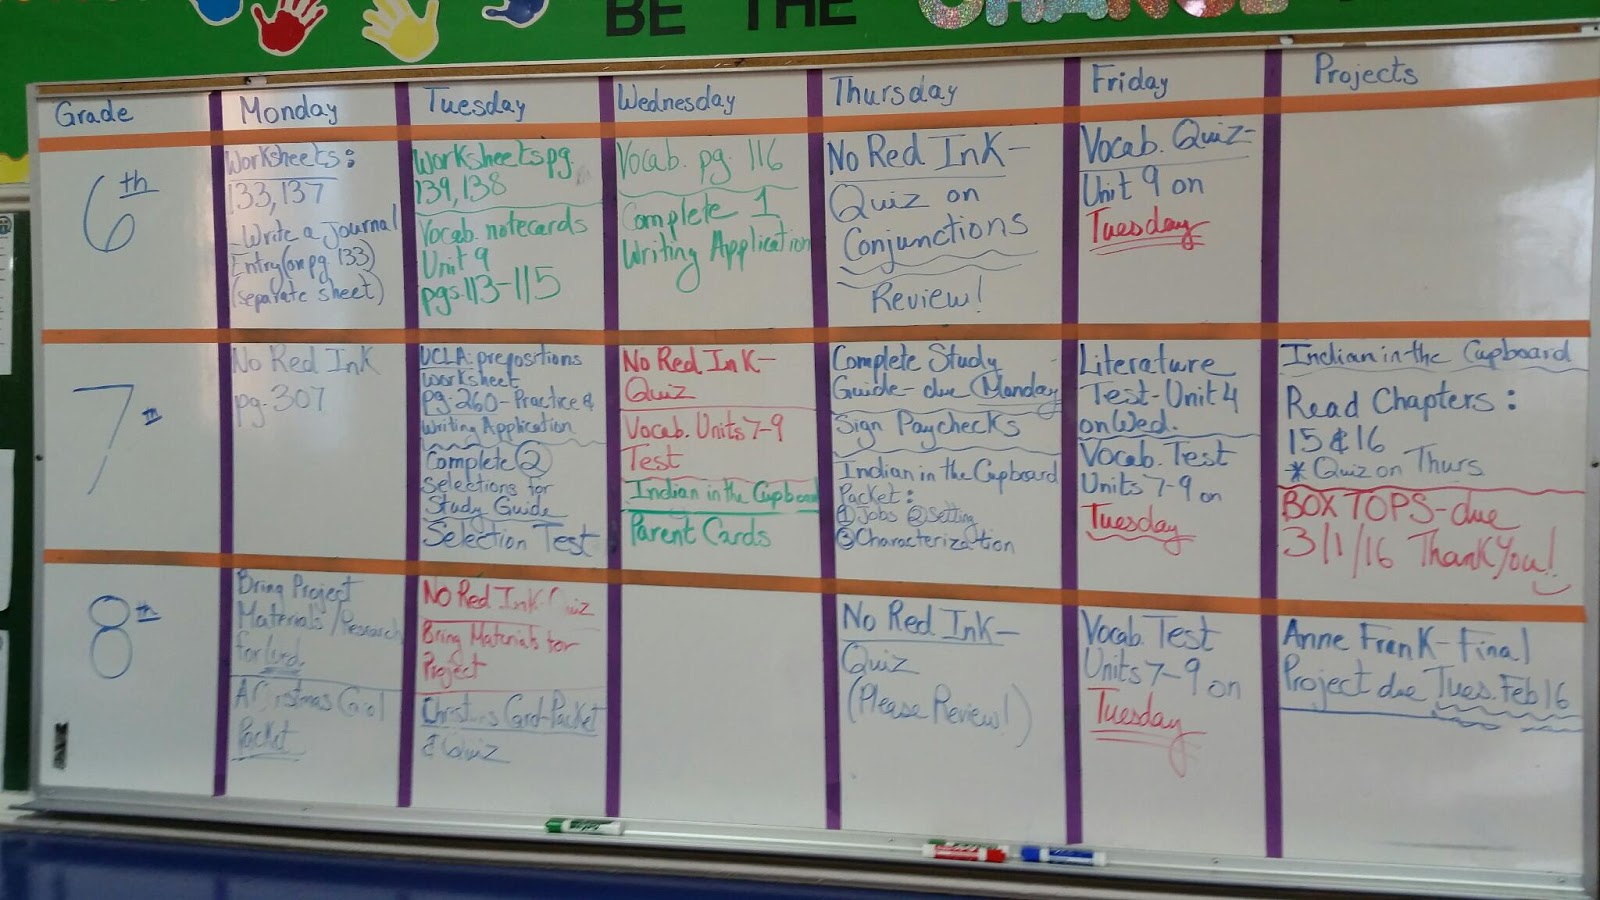 BE THE CHANGE
Grade
Monday
Tuesday
Wednesday
Thursday
Friday
Projects
6th
Worksheets:
133,137
-Write a Journal
Entry (on pg. 133)
(separate sheet)
Worksheets pg.
139,138
Vocab. notecards
Unit 9
pgs.113-115
Vocab. pg. 116
Complete 1
Writing Application
No Red Ink-
Quiz on
Conjunctions
Review!
Vocab. Quiz-
Unit 9 on
Tuesday
7th
No Red Ink
pg. 307
UCLA: prepositions
worksheet
pg. 260-Practice &
Writing Application
Complete 2
selections for
Study Guide
Selection Test
No Red Ink-
Quiz
Vocab. Units 7-9
Test
Indian in the Cupboard
Parent Cards
Complete Study
Guide-due Monday
Sign Paychecks
Indian in the Cupboard
Packet:
①Jobs ②Setting
③Characterization
Literature
Test-Unit 4
on Wed.
Vocab. Test
Units 7-9 on
Tuesday
Indian in the Cupboard
Read Chapters:
15 & 16
* Quiz on Thurs
BOX TOPS-due
3/1/16 Thank You!
8th
Bring Project
Materials/Research
for
A Christmas Carol
Packet
No Red Ink-Quiz
Bring Materials for
Project
Packet
& Quiz
No Red Ink-
Quiz
(Please Review!)
Vocab. Test
Units 7-9 on
Tuesday
Anne Frank-Final
Project due Tues. Feb 16